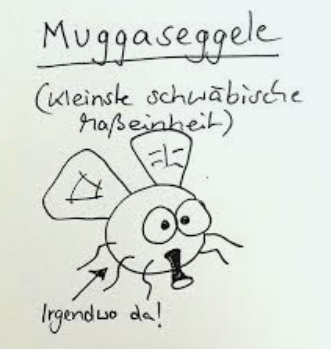 Muggaseggele
(kleinste schwäbische
Maßeinheit)
Irgendwo da!